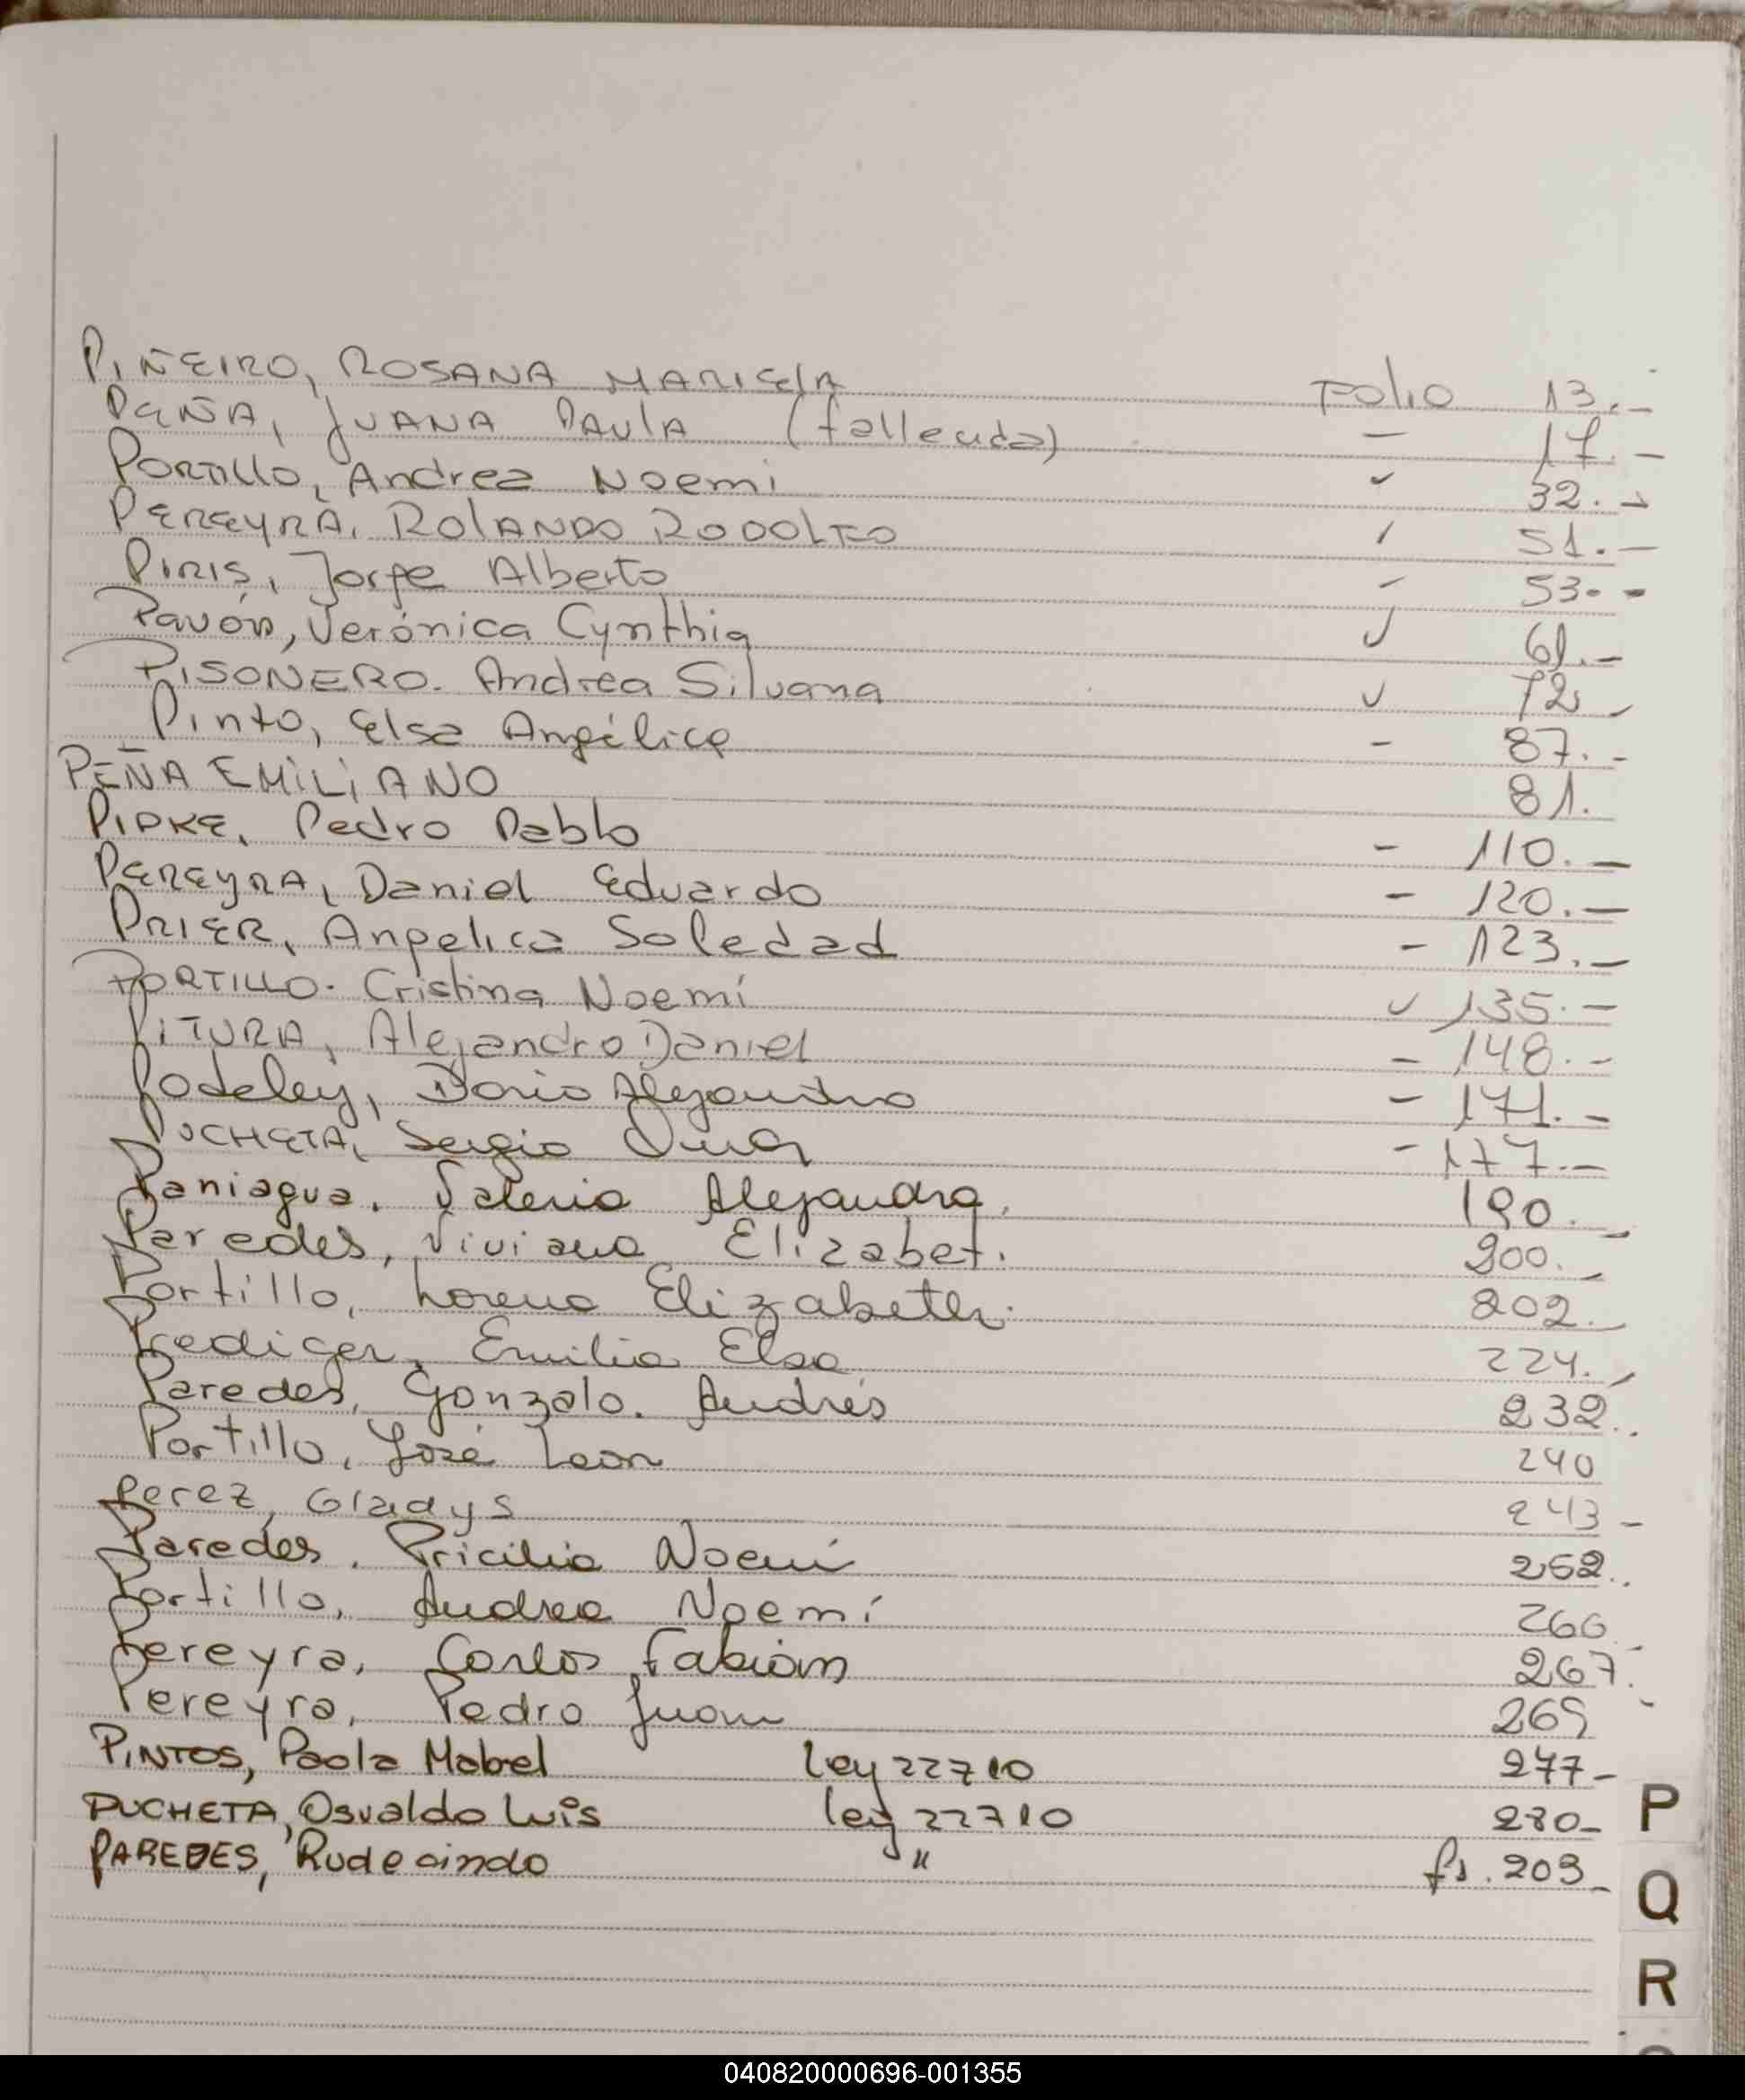 PIÑEIRO, ROSANA MARICELA Folio 13.-
PEÑA, JUANA PAULA (fallecida) - 17.-
PORTILLO, Andrea Noemi 32.-
PEREYRA, ROLANDO RODOLFO 51.-
PIRIS, Jorge Alberto - 53.-
Pavón, Verónica Cynthia 61.-
PISONERO. Andrea Silvana 72.-
Pinto, Elsa Angélica - 87.-
PEÑA EMILIANO 81.
PIPKE, Pedro Pablo - 110.-
PEREYRA, Daniel Eduardo - 120.-
PRIER, Angelica Soledad - 123.-
PORTILLO. Cristina Noemí 135.-
PITURA, Alejandro Daniel - 148.-
Podeley, Dario Alejandro - 171.-
PUCHETA, Sergio Omar - 177.-
Paniagua, Valeria Alejandra. 190.-
Paredes, Viviana Elizabet. 200.-
Portillo, Lorena Elizabeth. 202.-
Prediger, Emilia Elsa 224.-
Paredes, Gonzalo. Andrés 232.
Portillo, José Leon 240
Perez, Gladys 243-
Paredes. Pricilia Noemí 252.
Portillo, Andrea Noemí 266
Pereyra, Carlos Fabian 267.
Pereyra, Pedro Juan 269
PINTOS, Paola Mabel Ley 22710 277-
PUCHETA, Osvaldo Luis ley 22710 280-
PAREDES, Rudecindo " fs. 203-
P
Q
R
040820000696-001355